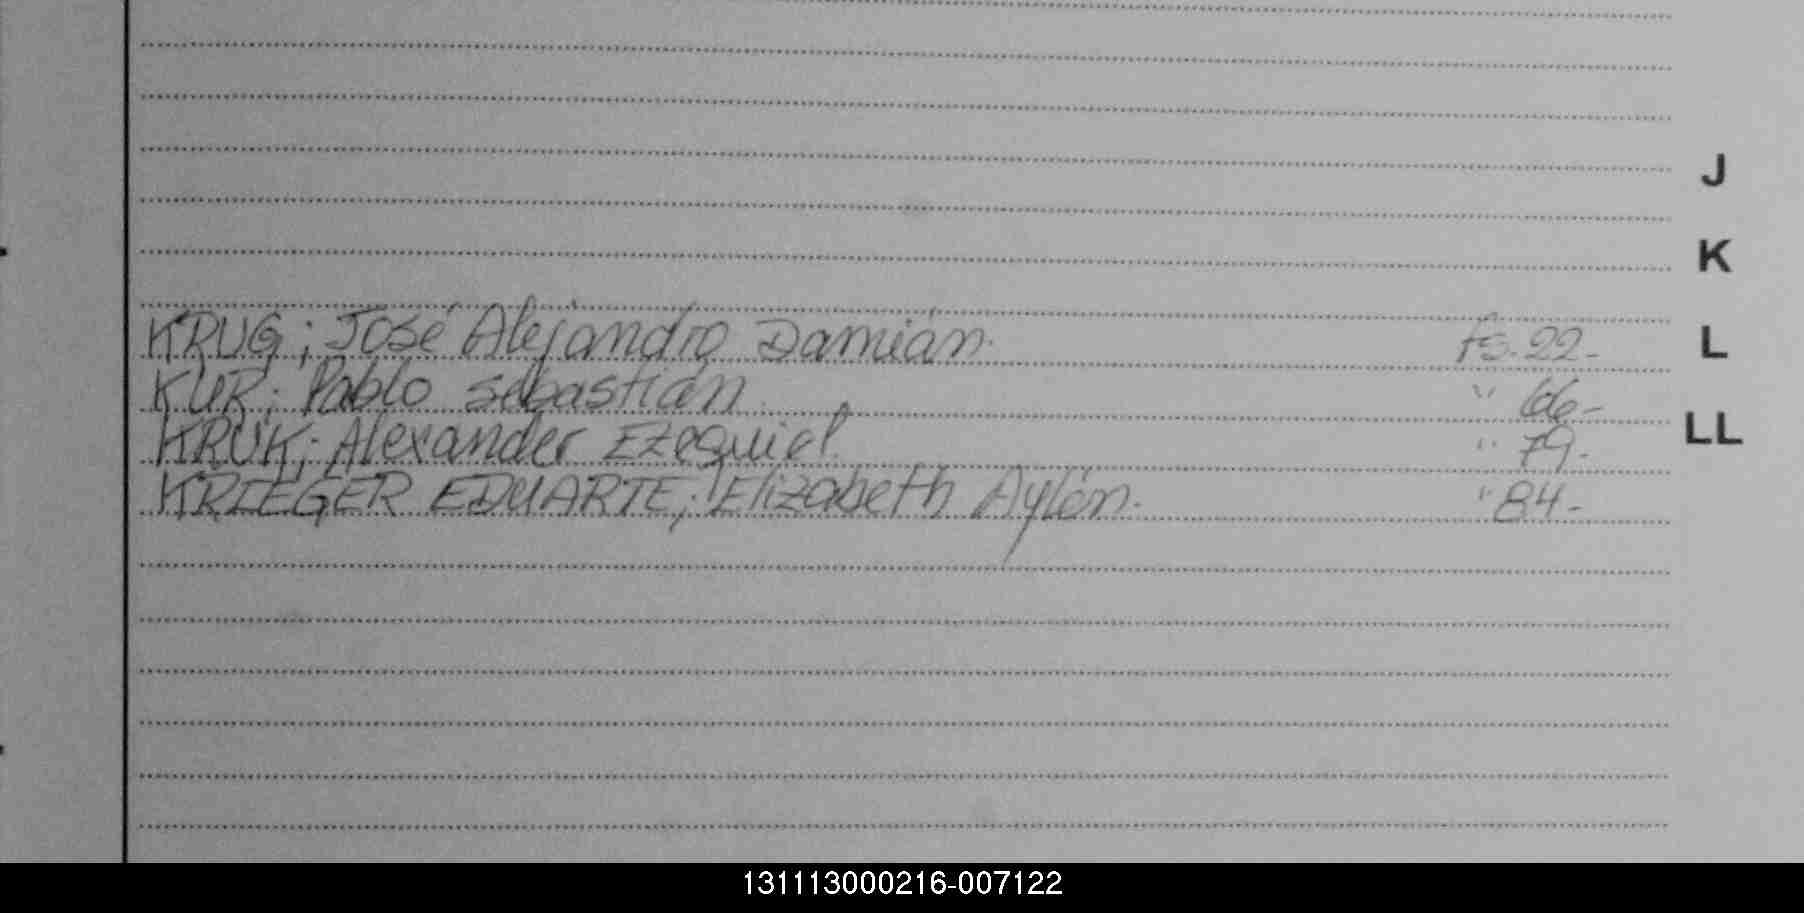 J
K
KRUG; José Alejandro Damián. fs. 22-
L
KUR; Pablo Sebastián " 66-
LL
KRUK; Alexander Ezequiel. " 79-
KRIEGER EDUARTE; Elizabeth Aylén. " 84-
131113000216-007122